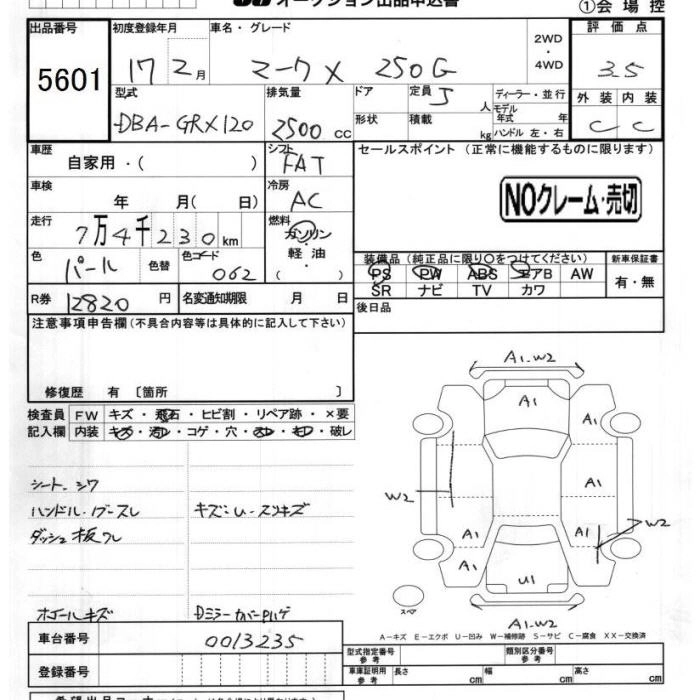 オークション出品申込書
①会場控
出品番号 初度登録年月 車名・グレード 2WD・4WD 評価点
5601 17 2月 マークX 250G 3.5
型式 排気量 ドア 定員 5人 ディーラー・並行 外装 内装
DBA-GRX120 2500cc 形状 積載 kg モデル年式 年 ハンドル 左・右 C C
車歴 シフト セールスポイント (正常に機能するものに限ります)
自家用・( ) FAT
車検 冷房 NOクレーム・売切
年 月( 日) AC
走行 燃料
7万4千230km ガソリン・軽油・( )
色 色替 色コード 装備品(純正品に限り○をつけてください) 新車保証書
パール 062 PS PW ABS エアB AW 有・無
SR ナビ TV カワ
R券 12820円 名変通知期限 月 日 後日品
注意事項申告欄(不具合内容等は具体的に記入して下さい)
修復歴 有 〔箇所 〕
検査員 FW キズ・飛石・ヒビ割・リペア跡・×要
記入欄 内装 キズ・汚れ・コゲ・穴・スレ・キレ・破レ
A1.W2
A1
A1
A1
W2
A1
A1
W2
A1
U1
スペア
A1.W2
シート.シワ
ハンドル.
ダッシュ板
ホイールキズ
Dミラーカバーハゲ
A-キズ E-エクボ U-凹み W-補修跡 S-サビ C-腐食 XX-交換済
車台番号 0013235
型式指定番号 参考 類別区分番号 参考
登録番号
車庫証明用 参考 長さ cm 幅 cm 高さ cm